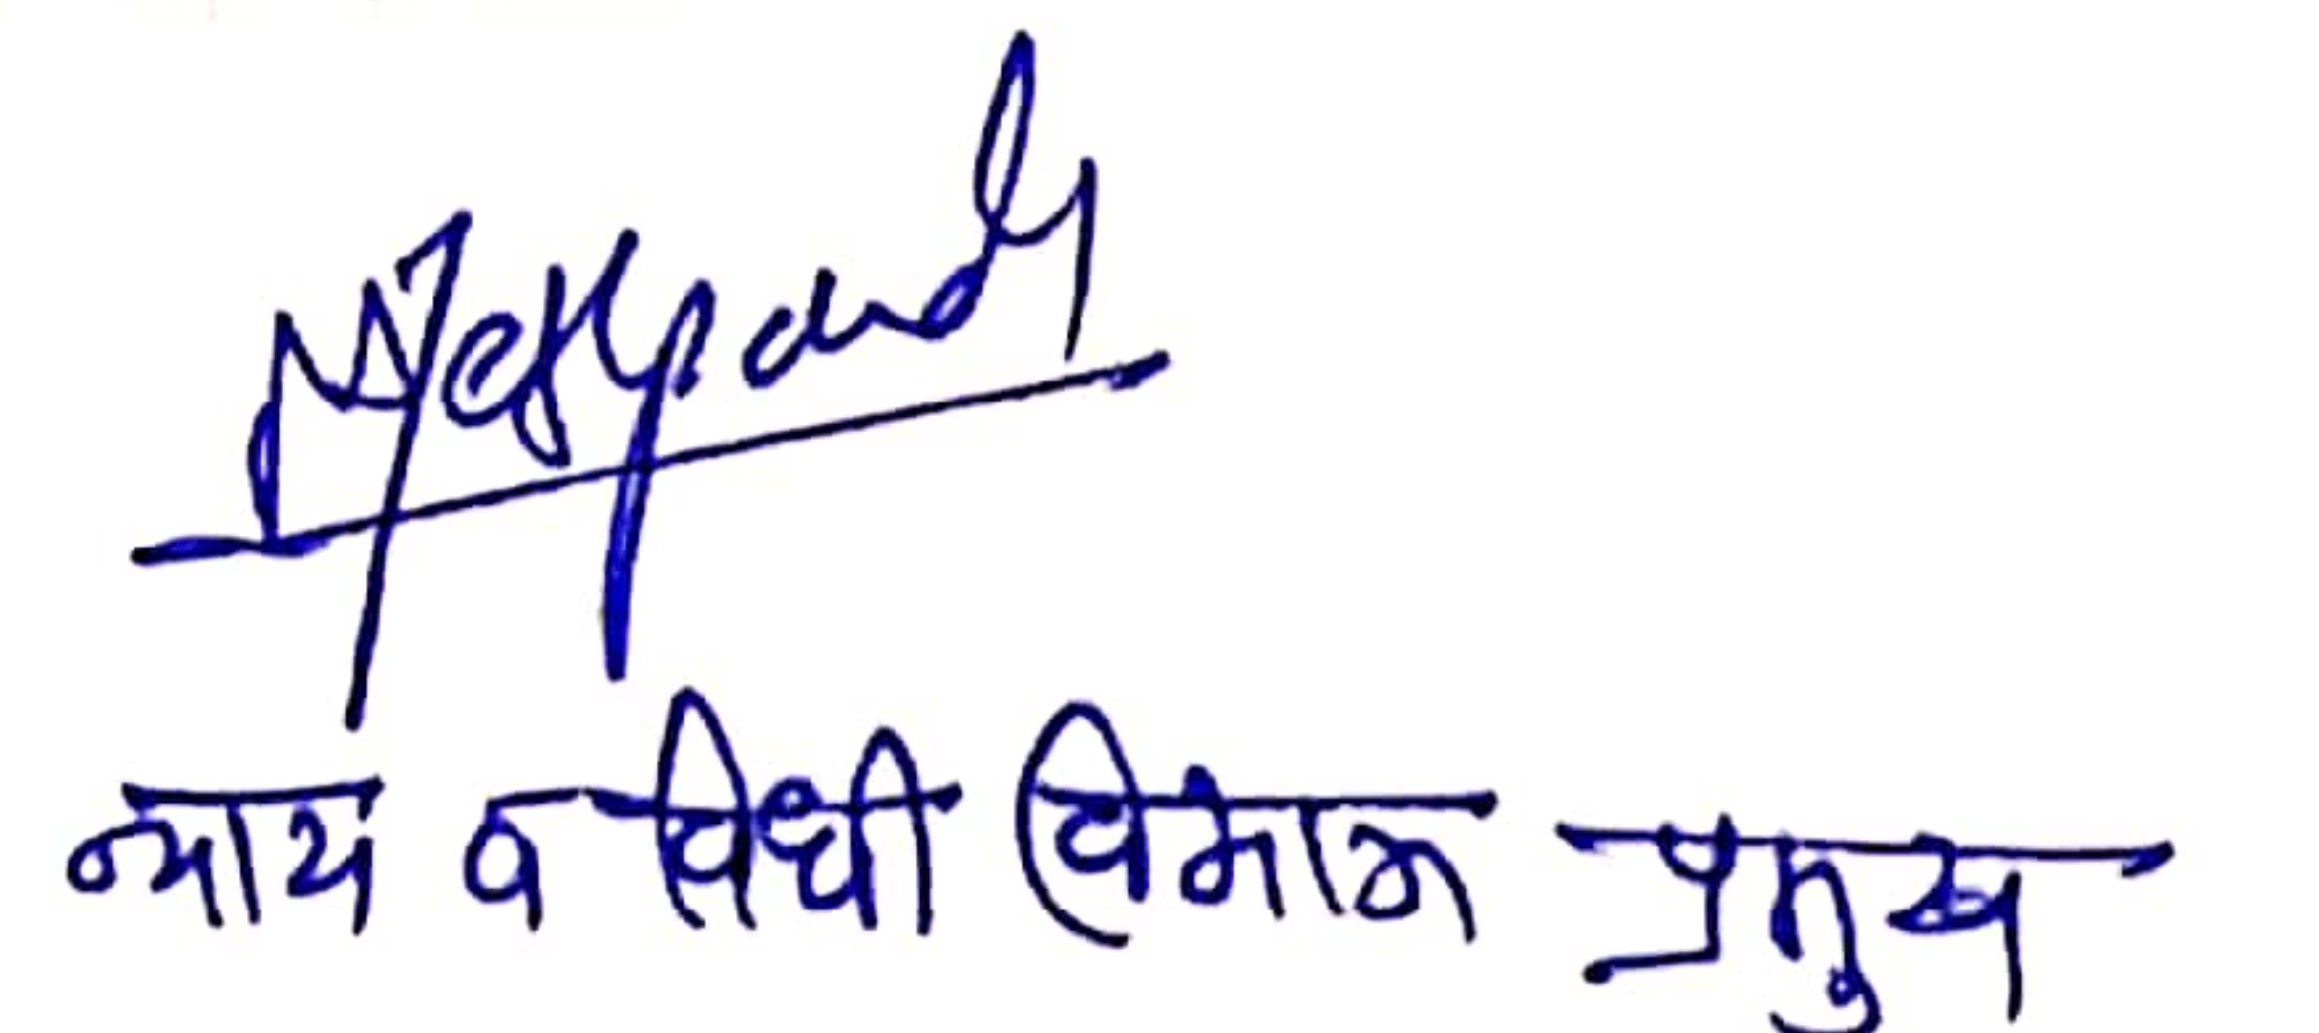 न्याय व विधी विभाग प्रमुख